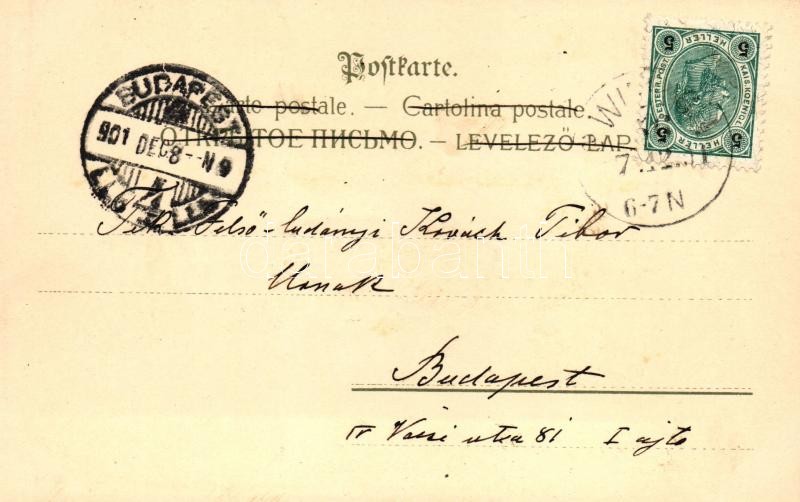 Postkarte.
Carte postale. — Cartolina postale.
ОТКРЫТОЕ ПИСЬМО. — LEVELEZŐ-LAP.
5 HELLER 5
KAIS. KOENIGL. OESTERR. POST.
5 HELLER 5
BUDAPEST
901 DEC 8 - N 9
WI
6-7 N
Tek. Felső-ludányi Kovách Tibor
Urnak
darabanth
Budapest
IV Váczi utca 81 I ajtó